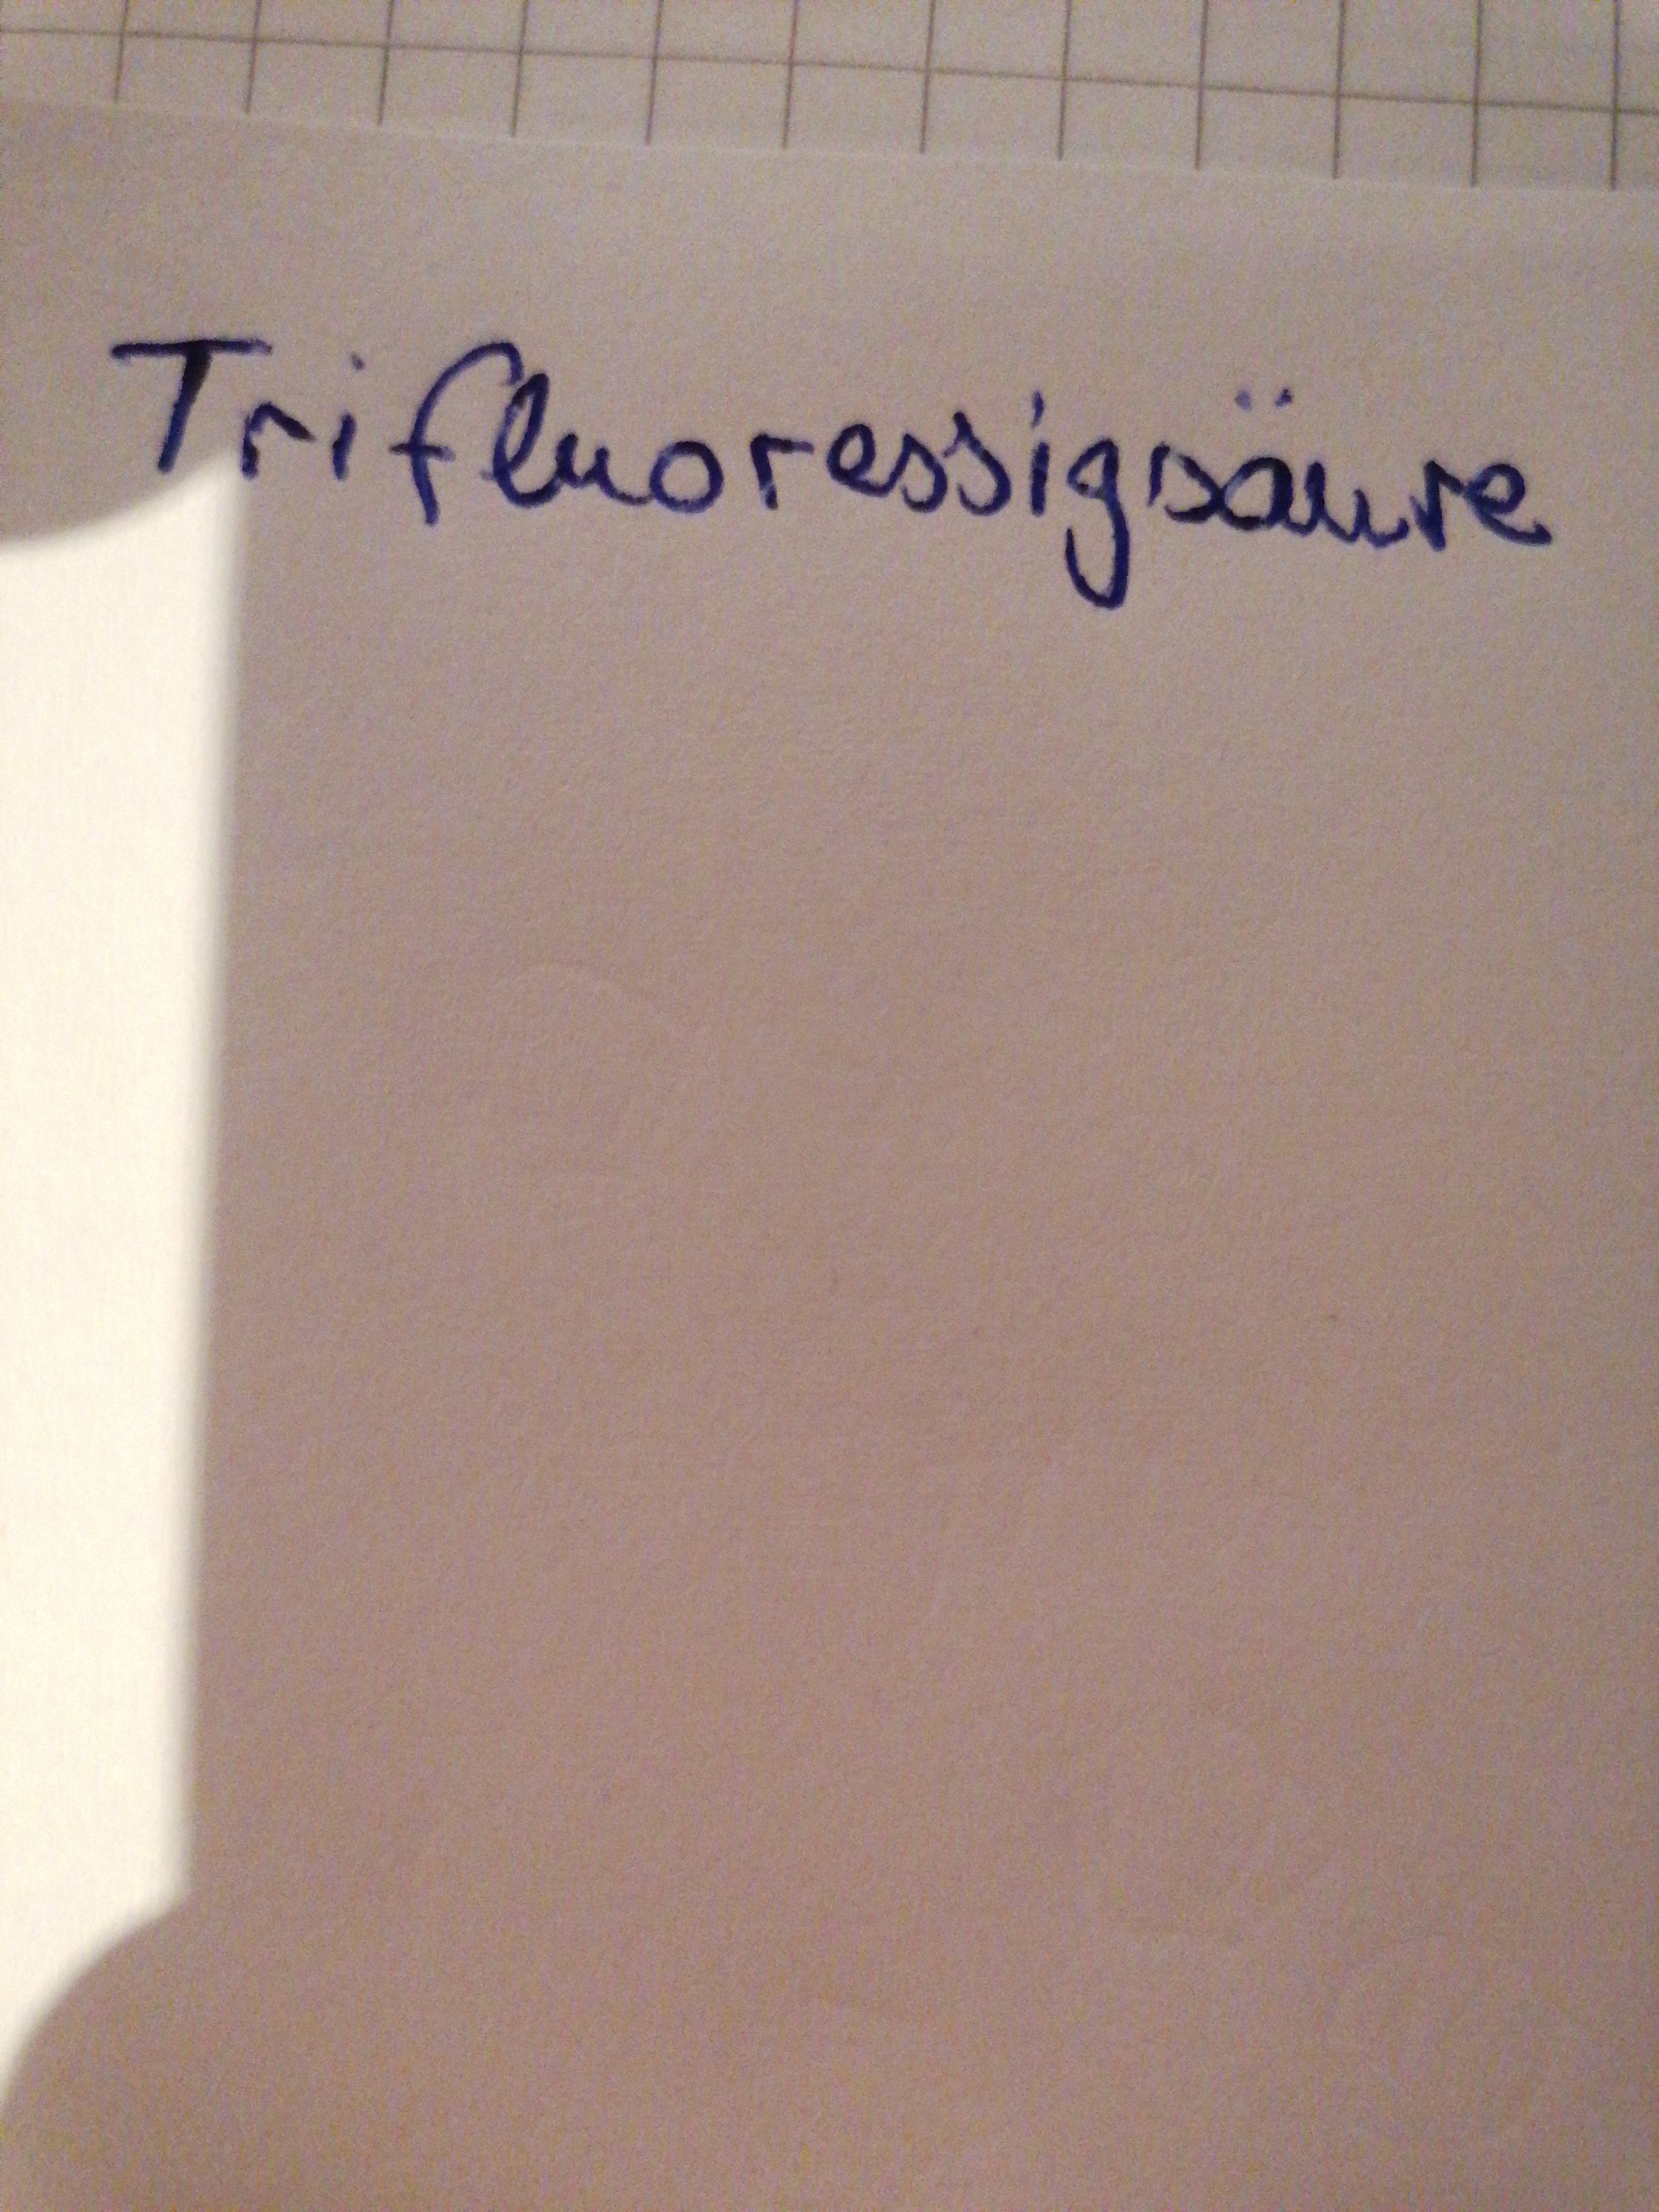 Trifluoressigsäure